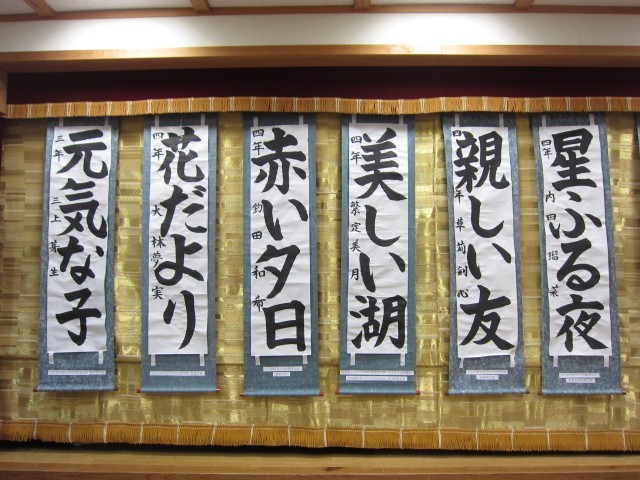 星ふる夜
四年 内田 瑠菜
親しい友
四年 草苅 剣心
美しい湖
四年 繁定 美月
赤い夕日
四年 釣田 和希
花だより
四年 大林 夢実
元気な子
三年 三上 芽生